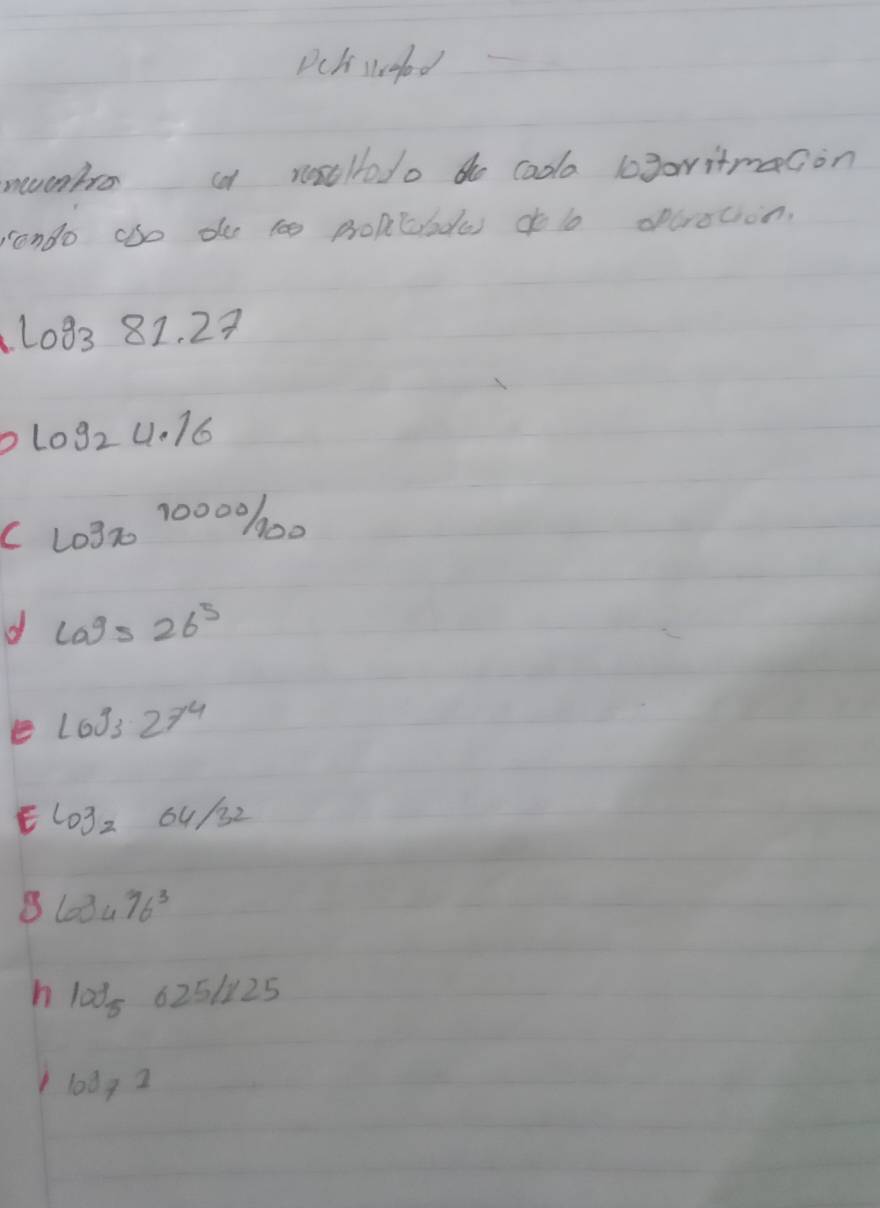 resultado de cada logaritmación
uso de propiedades de la operación.
Log3 81.27
b Log2 4.16
c Log10 10000/100
d Log5 26⁵
e Log3 27⁴
F Log2 64/32
g Log4 16³
h log5 625/125
i log7